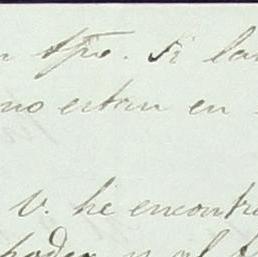 tpo. Si la
no estan en
V. he encontr
poder